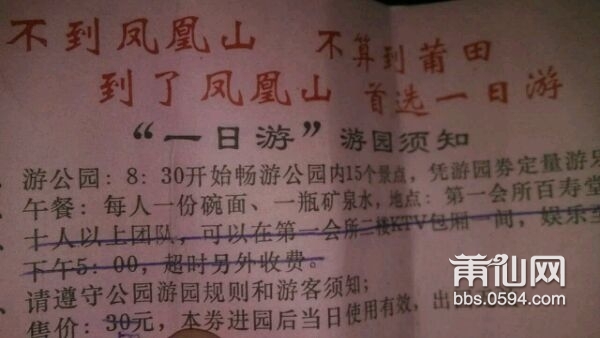 不到凤凰山 不算到莆田
到了凤凰山 首选一日游
“一日游”游园须知
、游公园：8：30开始畅游公园内15个景点，凭游园券定量游
、午餐：每人一份碗面、一瓶矿泉水，地点：第一会所百寿堂
、十人以上团队，可以在第一会所二楼KTV包厢一间，娱乐至
下午5：00，超时另外收费。
、请遵守公园游园规则和游客须知；
售价：30元，本券进园后当日使用有效，出
莆仙网
bbs.0594.com